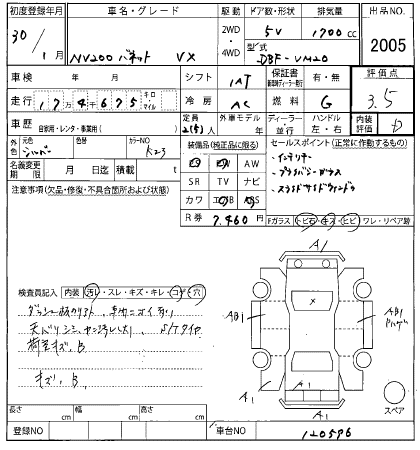 初度登録年月 車名・グレード 駆動 ドア数・形状 排気量 出品NO.
30/1月 NV200 バネット VX 2WD・4WD 5V 1700cc 2005
型式 DBF-VM20
車検 年 月 シフト IAT 保証書 有・無 評価点 3.5
走行 17万4千675キロ マイル 冷房 AC 燃料 G
車歴 自家用・レンタ・事業用( ) 定員 2(5)人 外車モデル 年 ディーラー・並行 ハンドル 左・右 内装評価 D
外色 元色 シルバー 色替 カラーNO K23
名義変更期限 月 日迄 積載 t
装備品(純正品に限る) PS PW AW
SR TV ナビ
カワ エアB ABS
R券 7,460円
セールスポイント(正常に作動するもの)
・インテリキー
・プライバシーガラス
・スライドサイドウィンドウ
注意事項(欠品・修復・不具合箇所および状態)
Fガラス(トビ石・キズ・ヒビ)ワレ・リペア跡
検査員記入 内装(汚レ・スレ・キズ・キレ・コゲ・穴)
荷室キズ、B
キズ、B
A1
AB1
AB1
X
A1
A1
A1
スペア
長さ cm 幅 cm 高さ cm
登録NO 車台NO 120596